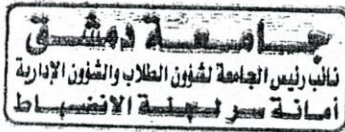 جامعة دمشق
نائب رئيس الجامعة لشؤون الطلاب والشؤون الإدارية
أمانة سر لجنة الانضباط